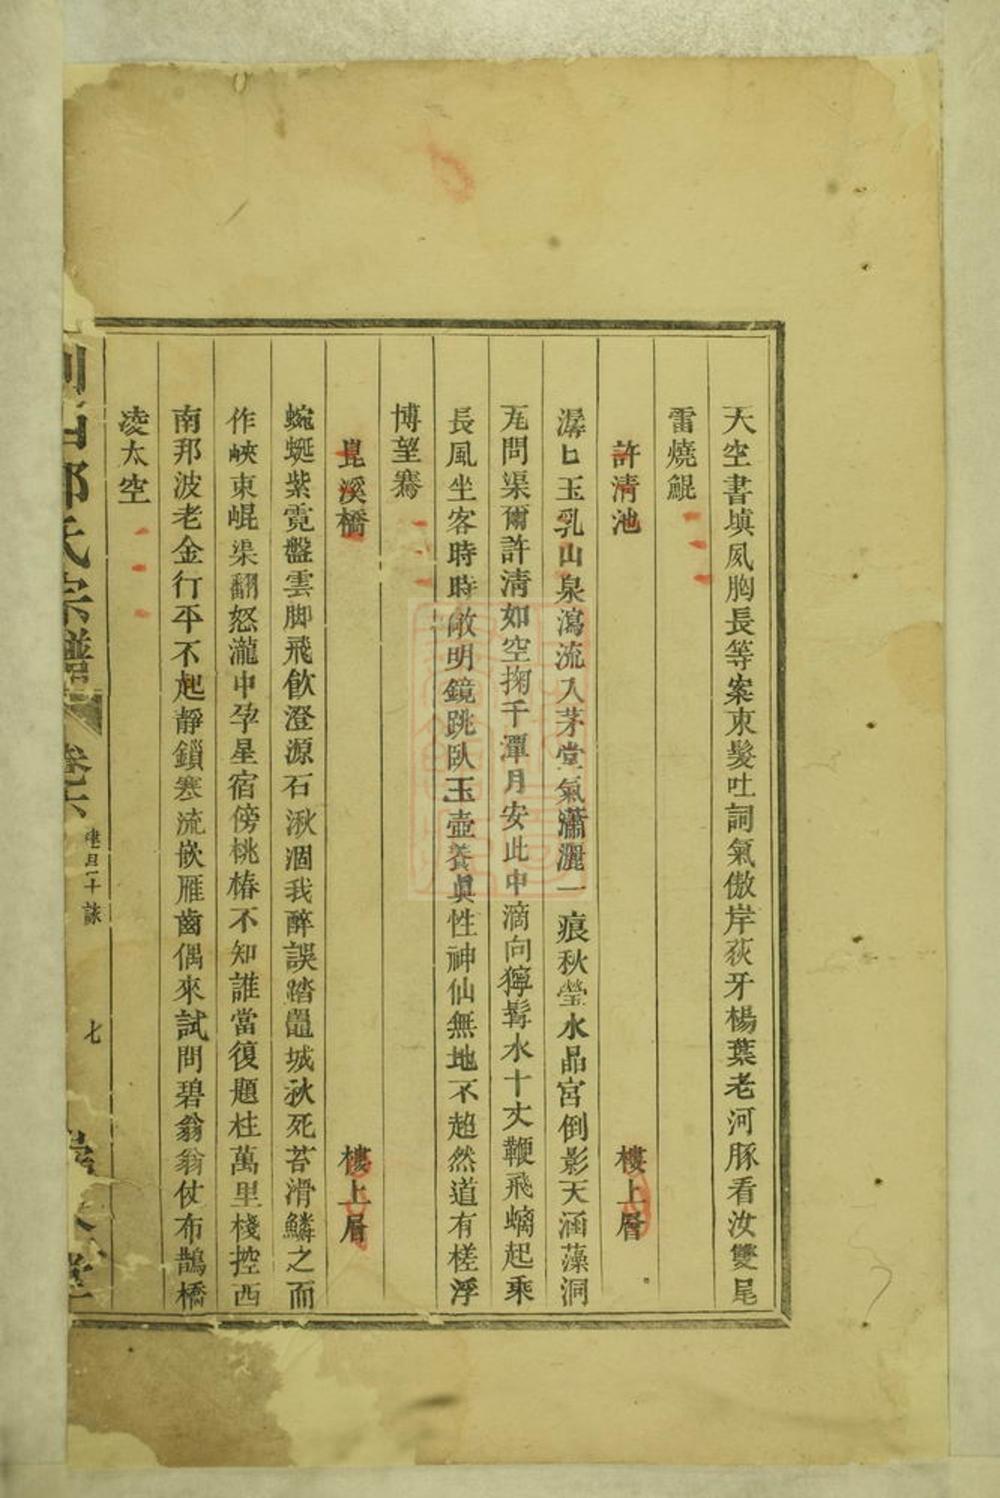 天空書塡夙胸長等案束髮吐詞氣傲岸荻牙楊葉老河豚看汝雙尾
雷燒鯤
許清池 樓上層
潺匕玉乳山泉瀉流入茅堂氣瀟灑一痕秋瑩水晶宮倒影天涵藻洞
尨問渠爾許淸如空掬千潭月安此中滴向獰髯水十丈鞭飛螭起乘
長風坐客時時啟明鏡跳臥玉壺養眞性神仙無地不超然道有槎浮
博望騫
崑溪橋 樓上層
蜿蜒紫霓盤雲脚飛飮澄源石湫涸我醉誤踏鼉城秋死苔滑鱗之而
作峽東崐渠翻怒瀧中孕星宿傍桃椿不知誰當復題柱萬里棧控西
南邦波老金行平不起靜鎖寒流嵌雁齒偶來試問碧翁翁仗布鵲橋
凌太空
郭氏宗譜 卷六 七